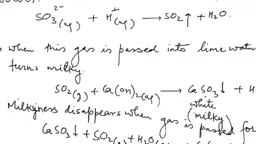 SO₃²⁻(aq) + H⁺(aq) → SO₂↑ + H₂O.
when this gas is passed into lime wate
turns milky.
SO₂(g) + Ca(OH)₂(aq) → CaSO₃↓ + H
white
(milky)
Milkyness disappears when gas is passed for
CaSO₃↓ + SO₂(g) + H₂O(